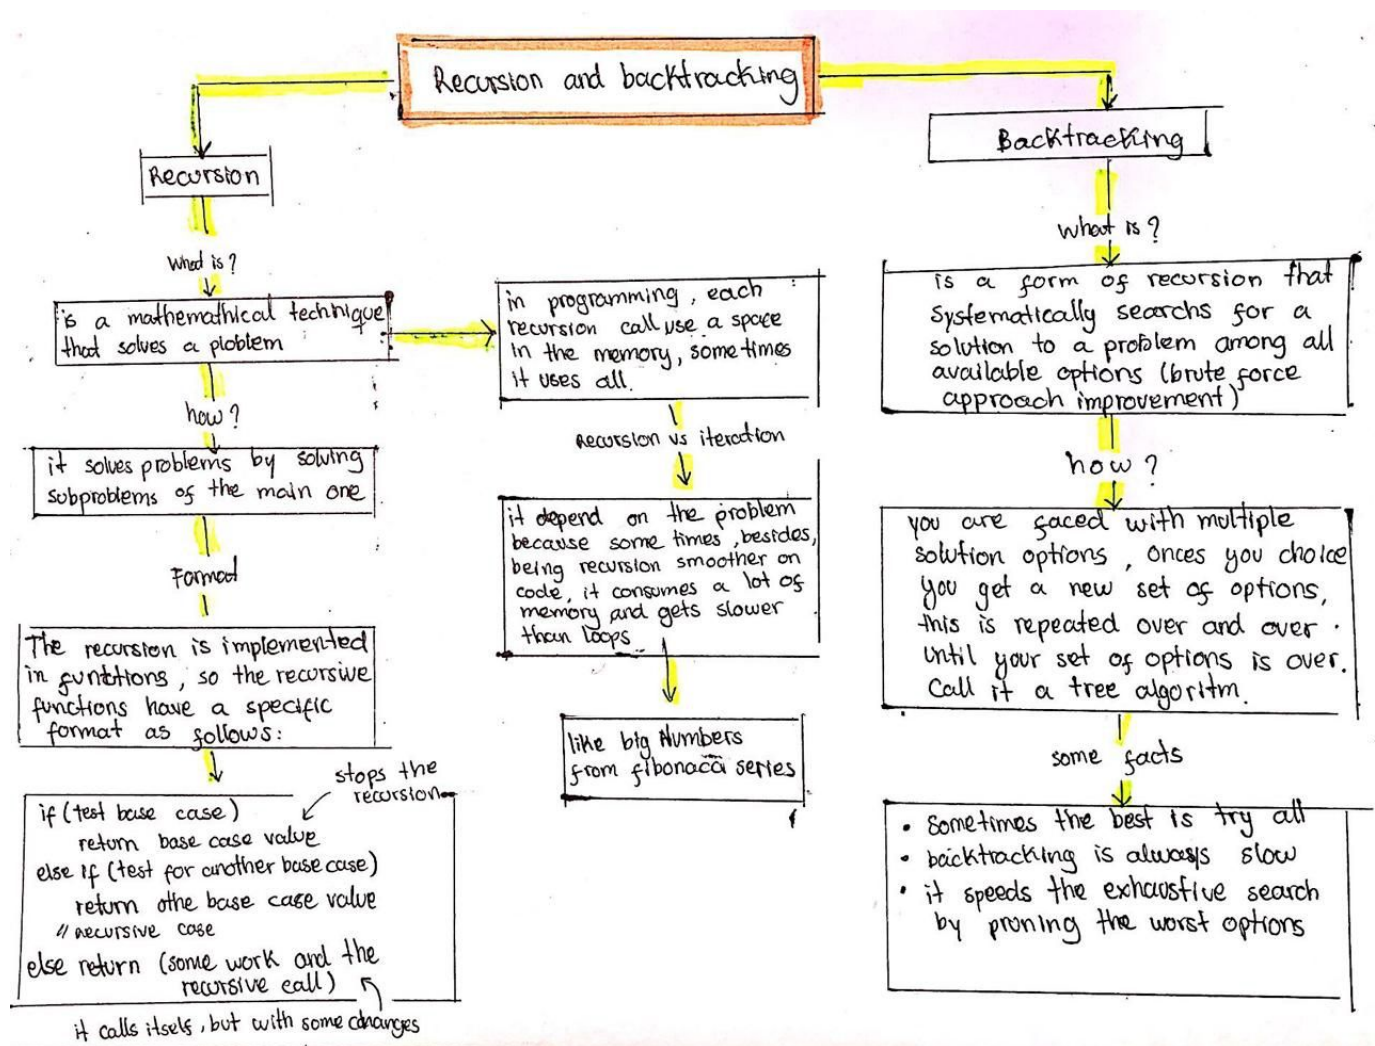 Recursion and backtracking
Recursion
what is?
is a mathemathical technique
that solves a ploblem
how?
it solves problems by solving
subproblems of the main one
Format
The recursion is implemented
in funbtions, so the recursive
functions have a specific
format as follows:
stops the
recursion
if (test base case)
return base case value
else if (test for another base case)
return othe base case value
// recursive case
else return (some work and the
recursive call)
it calls itself, but with some changes
in programming, each
recursion call use a space
in the memory, some times
it uses all.
Recursion vs iteration
it depend on the problem
because some times, besides,
being recursion smoother on
code, it consumes a lot of
memory and gets slower
than loops
like big Numbers
from fibonacci series
Backtracking
what is?
is a form of recursion that
systematically searchs for a
solution to a problem among all
available options (brute force
approach improvement)
how?
you are faced with multiple
solution options, onces you choice
you get a new set of options,
this is repeated over and over.
until your set of options is over.
Call it a tree algoritm.
some facts
• sometimes the best is try all
• backtracking is always slow
• it speeds the exhaustive search
by pruning the worst options